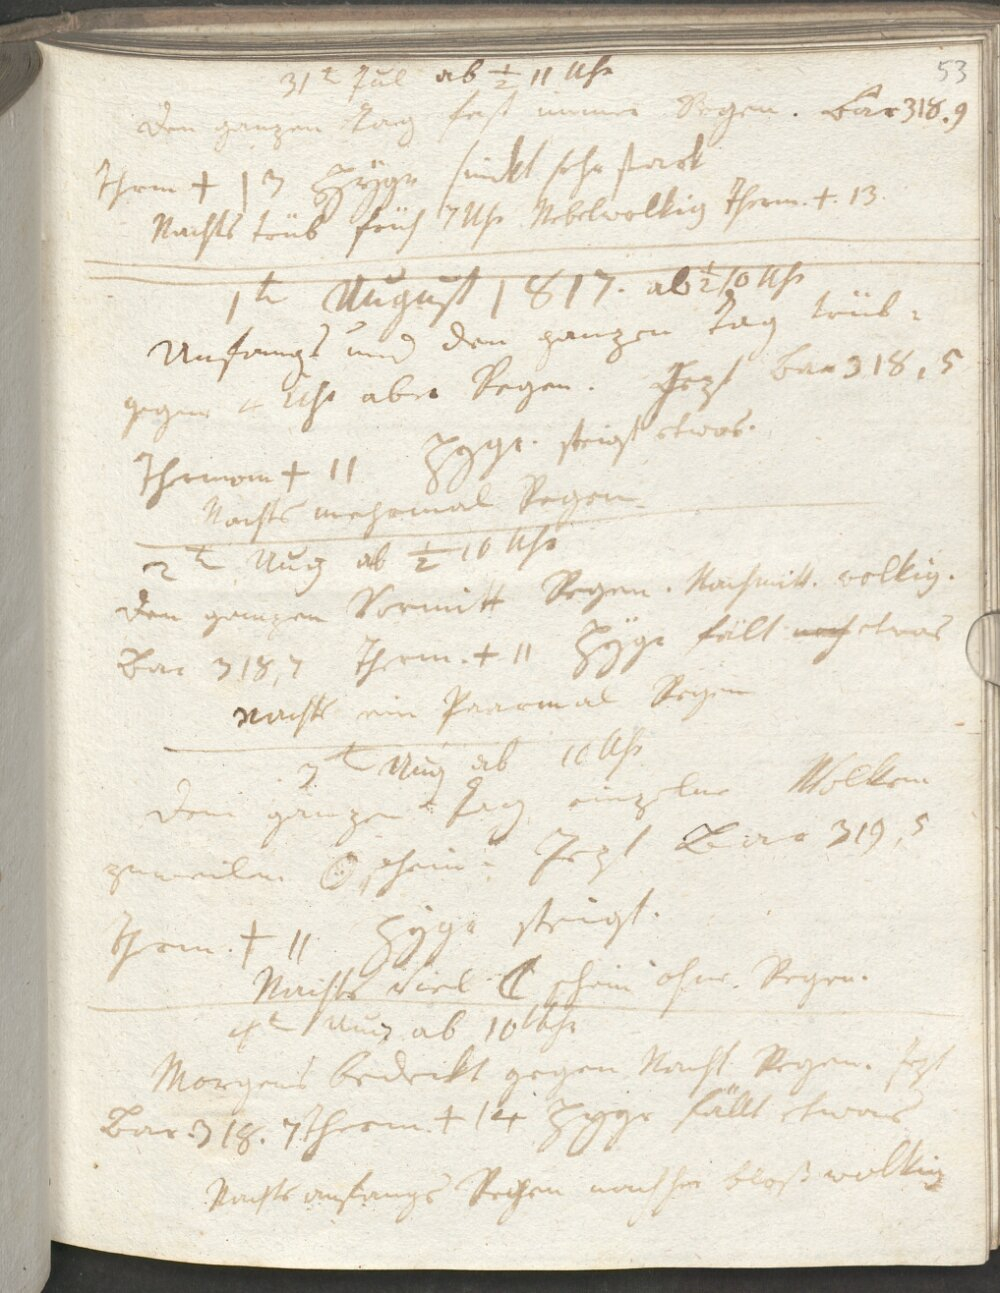 53
31t Jul ab ½ 11 Uhr
Den ganzen Tag fast immer Regen. Bar 318.9
Thrm + 13 Hÿgr sinkt sehr stark
Nachts trüb früh 7 Uhr Nebelwolkig Therm. + 13.
1t August 1817. ab ½ 10 Uhr
Anfangs und den ganzen Tag trüb
gegen 4 Uhr aber Regen. Jezt Bar 318,5
Thrmom + 11 Hygr. steigt etwas.
Nachts mehrmal Regen
2t Aug ab ½ 10 Uhr
Den ganzen Vormitt Regen. Nachmitt. wolkig.
Bar 318,7 Thrm. + 11 Hÿgr fält noch etwas
Nachts ein Paarmal Regen
3t Aug ab 10 Uhr
Den ganzen Tag einzelne Wolken
zuweilen ☉ schein. Jezt Bar 319,5
Thrm. + 11 Hÿgr steigt.
Nachts viel ☾ schein ohne Regen.
4t Aug ab 10 Uhr
Morgens bedeckt gegen Nacht Regen. Jezt
Bar. 318.7 Therm. + 14 Hygr fällt etwas
Nachts anfangs Regen nachher bloß wolkig